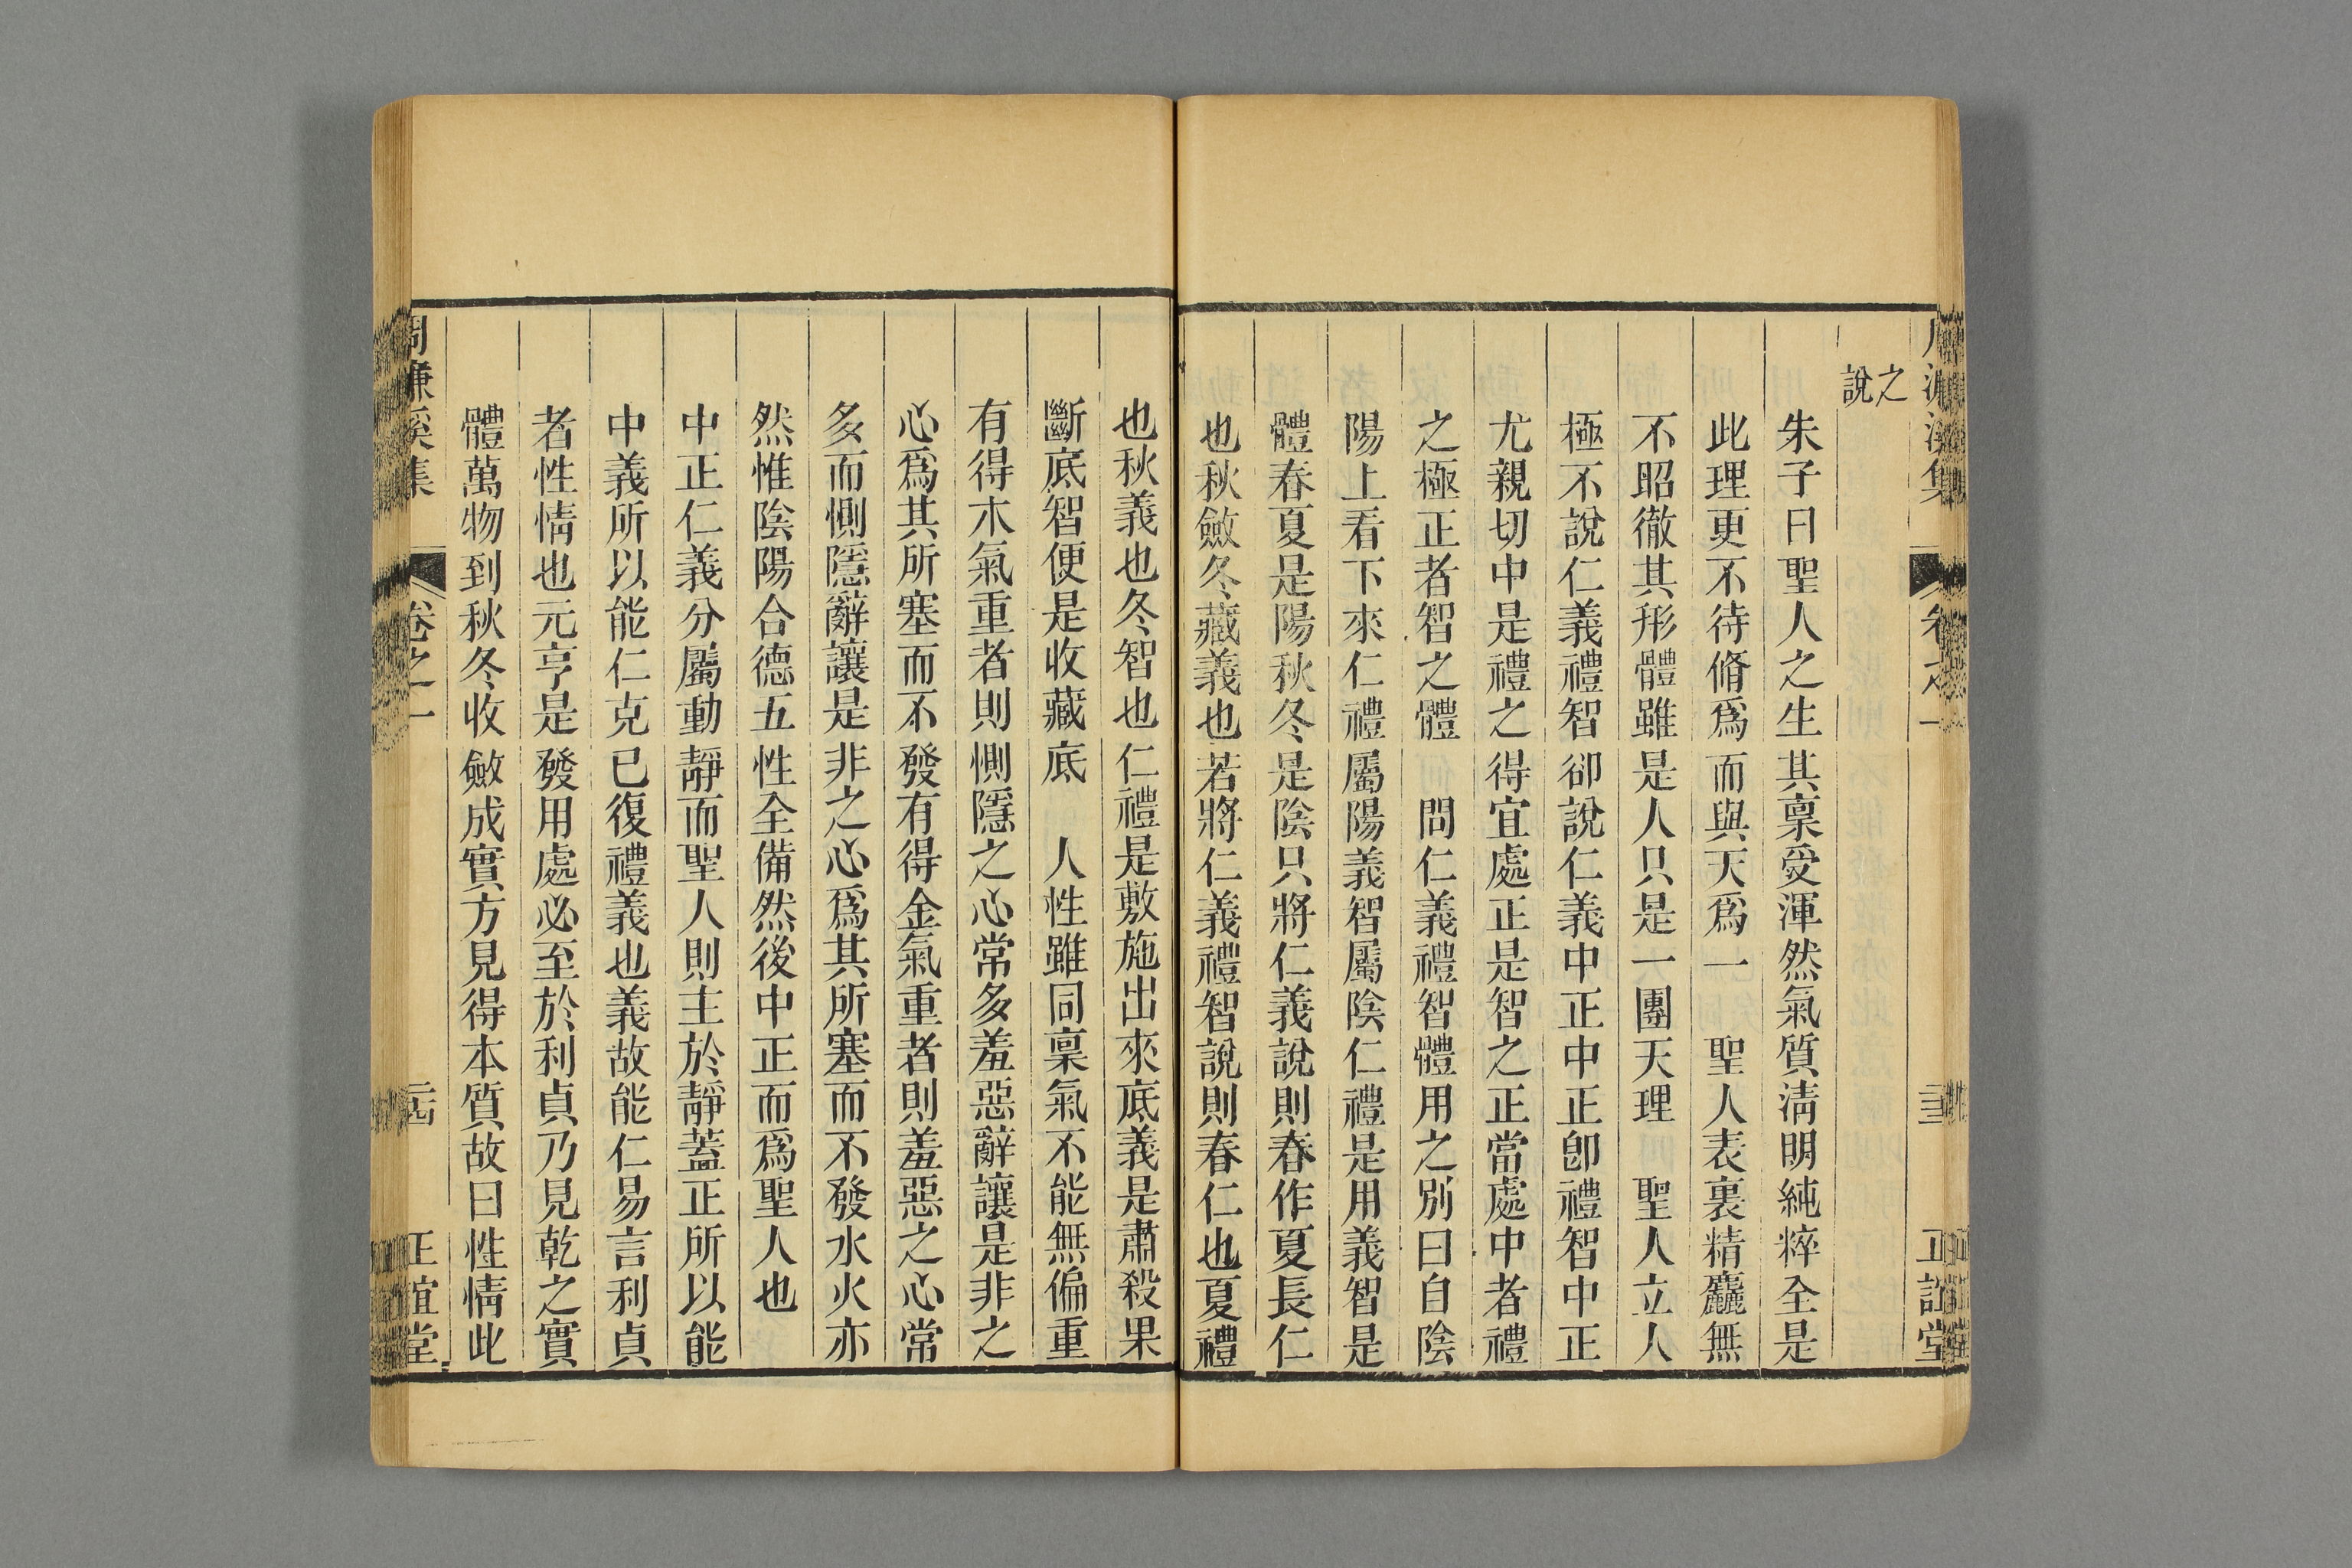 之
說
朱子曰聖人之生其稟受渾然氣質清明純粹全是
此理更不待脩爲而與天爲一　聖人表裏精麤無
不昭徹其形體雖是人只是一團天理　聖人立人
極不說仁義禮智卻說仁義中正中正卽禮智中正
尤親切中是禮之得宜處正是智之正當處中者禮
之極正者智之體　問仁義禮智體用之別曰自陰
陽上看下來仁禮屬陽義智屬陰仁禮是用義智是
體春夏是陽秋冬是陰只將仁義說則春作夏長仁
也秋斂冬藏義也若將仁義禮智說則春仁也夏禮
也秋義也冬智也仁禮是敷施出來底義是肅殺果
斷底智便是收藏底　人性雖同稟氣不能無偏重
有得木氣重者則惻隱之心常多羞惡辭讓是非之
心爲其所塞而不發有得金氣重者則羞惡之心常
多而惻隱辭讓是非之心爲其所塞而不發水火亦
然惟陰陽合德五性全備然後中正而爲聖人也
中正仁義分屬動靜而聖人則主於靜蓋正所以能
中義所以能仁克已復禮義也義故能仁易言利貞
者性情也元亨是發用處必至於利貞乃見乾之實
體萬物到秋冬收斂成實方見得本質故曰性情此
周濂溪集
卷之一
正誼堂